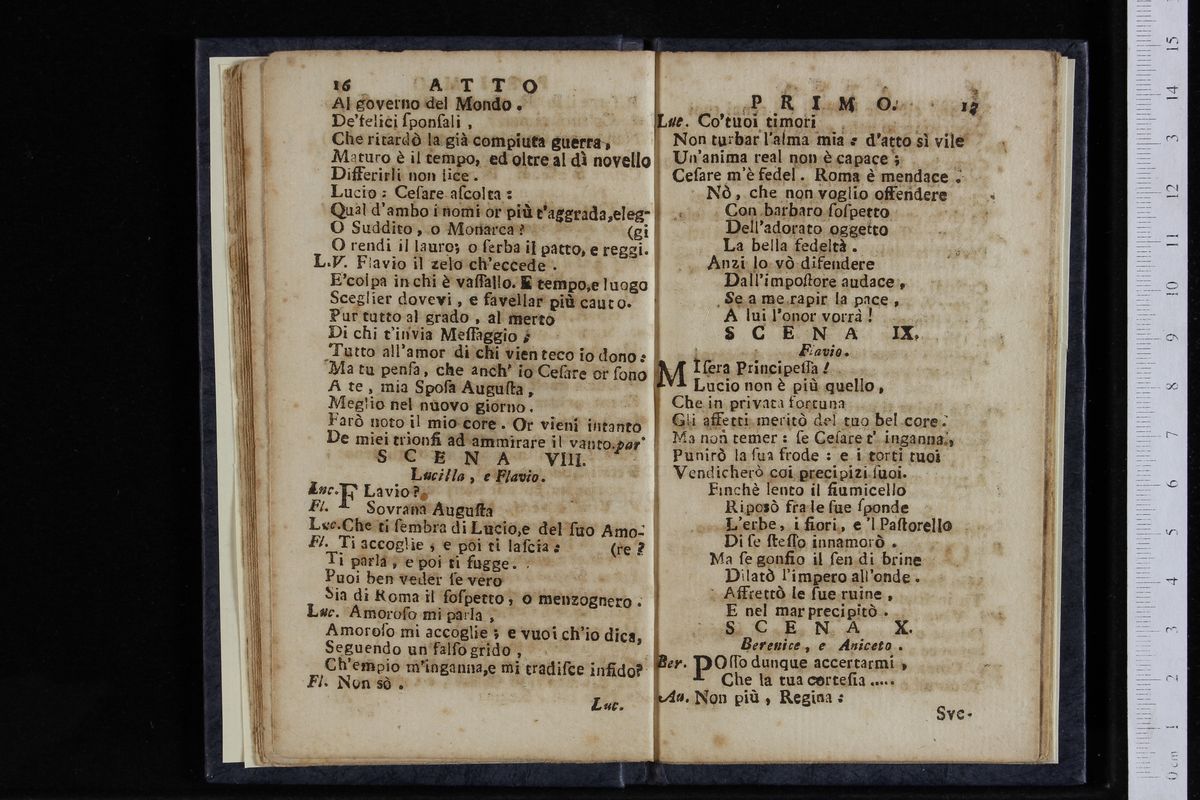 16 ATTO
Al governo del Mondo .
De'felici ſponſali ,
Che ritardò la già compiuta guerra ,
Maturo è il tempo, ed oltre al dì novello
Differirli non lice .
Lucio : Ceſare aſcolta :
Qual d'ambo i nomi or più t'aggrada,eleg-
O Suddito , o Monarca ? (gi
O rendi il lauro; o ſerba il patto, e reggi.
L.V. Flavio il zelo ch'eccede .
E'colpa in chi è vaſſallo. E tempo,e luogo
Sceglier dovevi , e favellar più cauto.
Pur tutto al grado , al merto
Di chi t'invia Meſſaggio ;
Tutto all'amor di chi vien teco io dono :
Ma tu penſa , che anch' io Ceſare or ſono
A te , mia Spoſa Auguſta ,
Meglio nel nuovo giorno .
Farò noto il mio core . Or vieni intanto
De miei trionfi ad ammirare il vanto.par
SCENA VIII.
Lucilla , e Flavio.
Luc. FLavio ?
Fl. Sovrana Auguſta
Luc.Che ti ſembra di Lucio,e del ſuo Amo-
Fl. Ti accoglie , e poi ti laſcia : (re ?
Ti parla , e poi ti fugge .
Puoi ben veder ſe vero
Sia di Roma il ſoſpetto , o menzognero .
Luc. Amoroſo mi parla ,
Amoroſo mi accoglie ; e vuoi ch'io dica,
Seguendo un falſo grido ,
Ch'empio m'inganna,e mi tradiſce infido?
Fl. Non sò .
Luc.
PRIMO. 17
Luc. Co'tuoi timori
Non turbar l'alma mia : d'atto sì vile
Un'anima real non è capace ;
Ceſare m'è fedel . Roma è mendace .
Nò , che non voglio offendere
Con barbaro ſoſpetto
Dell'adorato oggetto
La bella fedeltà .
Anzi lo vò difendere
Dall'impoſtore audace ,
Se a me rapir la pace ,
A lui l'onor vorrà !
SCENA IX.
Flavio.
MIſera Principeſſa !
Lucio non è più quello ,
Che in privata fortuna
Gli affetti meritò del tuo bel core .
Ma non temer : ſe Ceſare t' inganna ,
Punirò la ſua frode : e i torti tuoi
Vendicherò coi precipizi ſuoi.
Finchè lento il fiumicello
Riposò fra le ſue ſponde
L'erbe , i fiori , e 'l Paſtorello
Di ſe ſteſſo innamorò .
Ma ſe gonfio il ſen di brine
Dilatò l'impero all'onde .
Affrettò le ſue ruine ,
E nel mar precipitò .
SCENA X.
Berenice , e Aniceto .
Ber. POſſo dunque accertarmi ,
Che la tua corteſia .....
An. Non più , Regina :
Svc-
0 cm 1 2 3 4 5 6 7 8 9 10 11 12 13 14 15